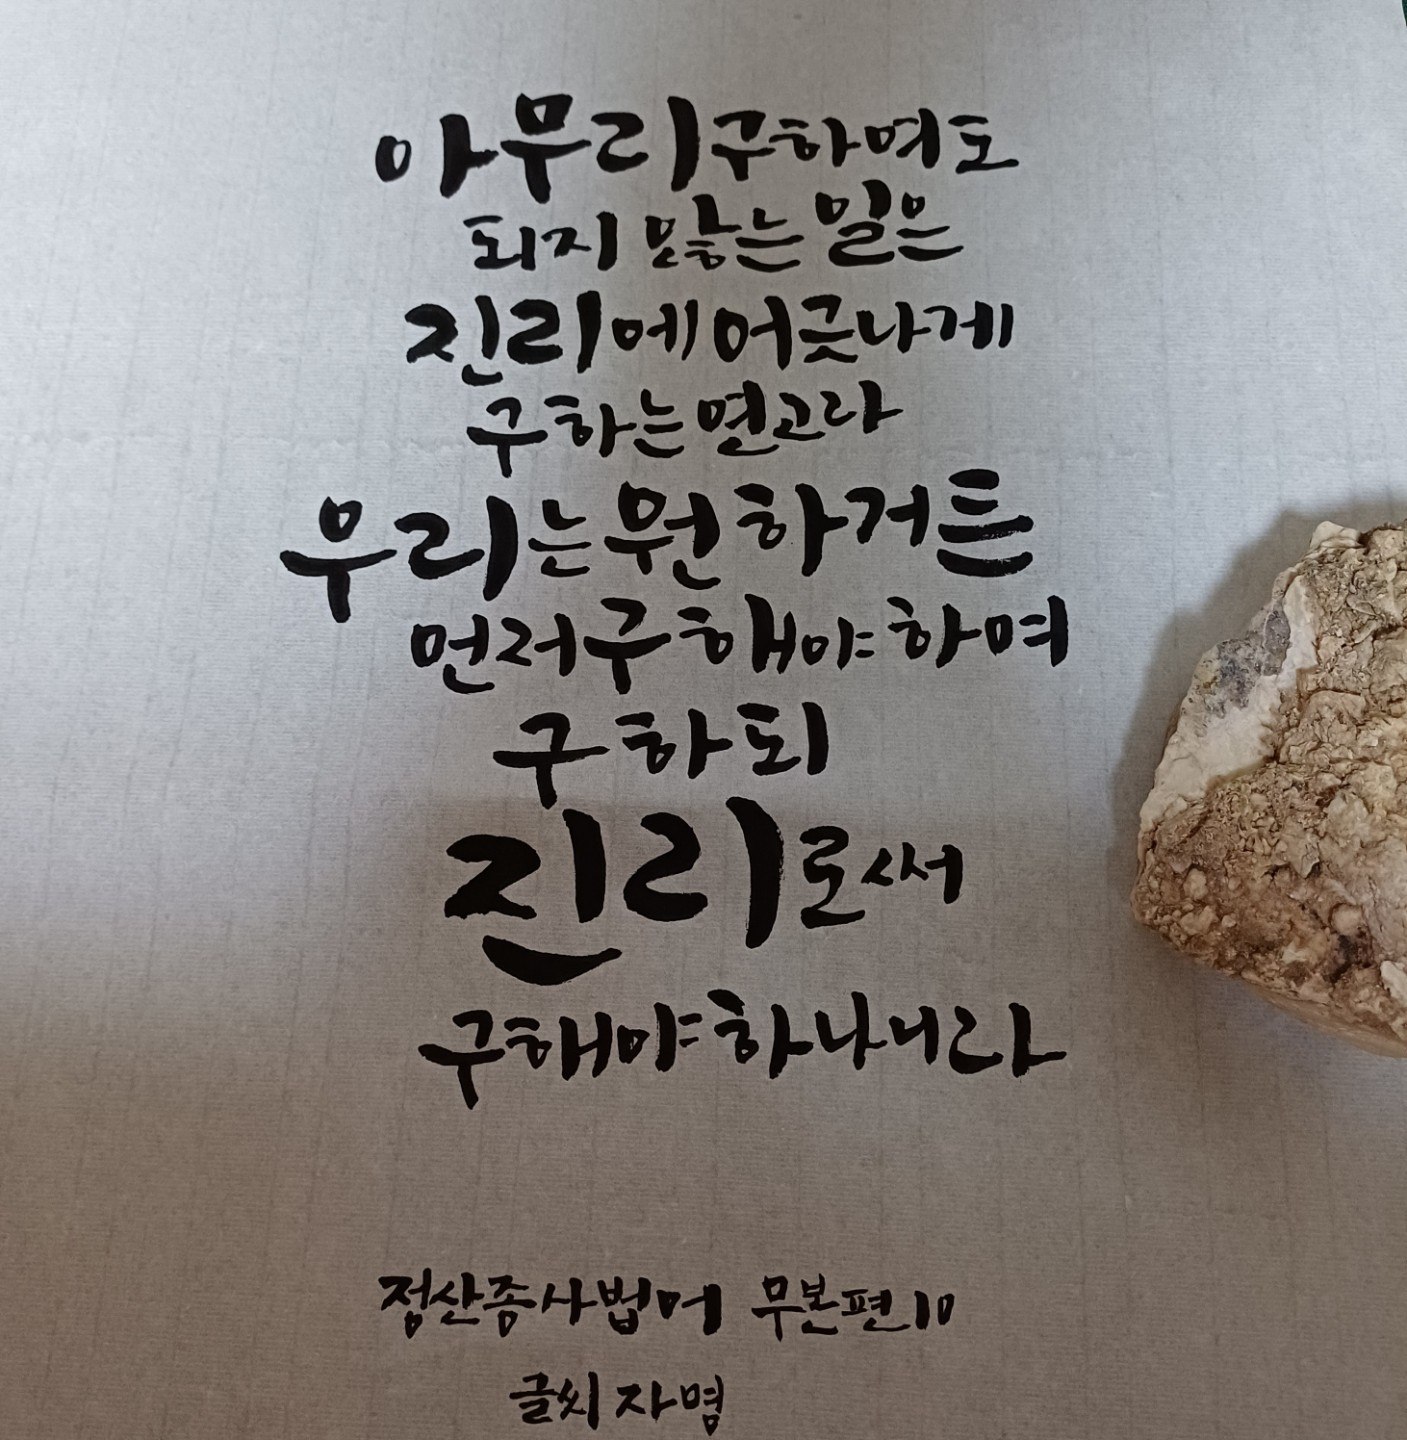 아무리 구하여도
되지 않는 일은
진리에 어긋나게
구하는 연고라
우리는 원하거든
먼저 구해야 하며
구하되
진리로써
구해야 하나니라
정산종사법어 무본편 10
글씨 자명